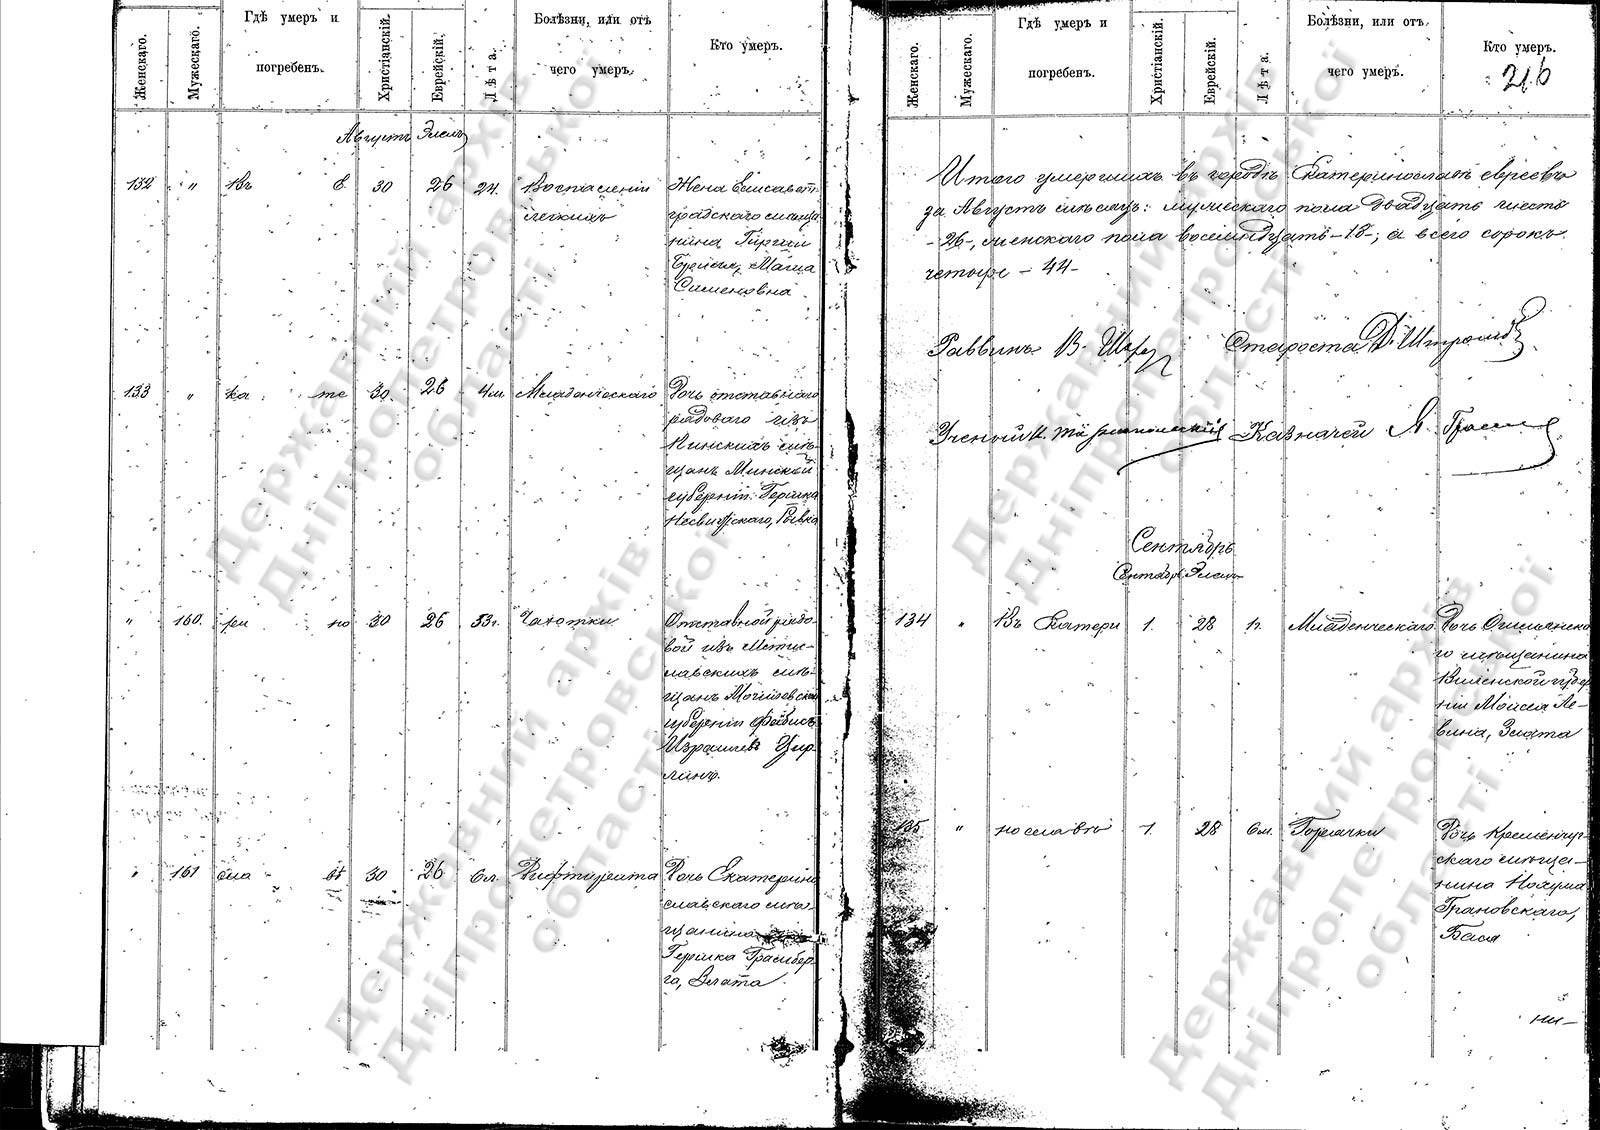 Женскаго.
Мужескаго.
Гдѣ умеръ и
погребенъ.
Христіанскій.
Еврейскій.
Лѣта.
Болѣзни, или отъ
чего умеръ.
Кто умеръ.
Августъ Элелъ
132 „ Въ Е 30 26 24. Воспаленіи
легкихъ
Жена Елисавет-
градскаго мѣща
нина
Маша
Сименовна
133 „ ка те 30. 26 4м Младенческаго
Дочь отставнаго
рядоваго изъ
Пинскихъ мѣ-
щанъ Минской
губерніи Гершка
Несвижскаго, Рывка
„ 160. ри но 30 26 53г. Чахотки
Отставной рядо-
вой изъ Мсти-
славскихъ мѣ-
щанъ Могилевской
губерніи Фейвисъ
Израилевъ Цир
линъ.
„ 161 сла вѣ 30 26 6л. Дифтирита
Дочь Екатерино
славскаго мѣ-
щанина
Гершка Грайсбер-
га, Злата
Женскаго.
Мужескаго.
Гдѣ умеръ и
погребенъ.
Христіанскій
Еврейскій.
Лѣта.
Болѣзни, или отъ
чего умеръ.
Кто умеръ.
216
Итого умершихъ въ городѣ Екатеринославѣ евреевъ
за Августъ мѣсяцъ: мужескаго пола двадцать шесть
-26-, женскаго пола восемнадцать -18-; а всего сорокъ
четыре - 44-
Раввинъ В. Шахъ Староста Д. Штромбъ
Ученый Казначей
Сентябрь
Сентябрь Элелъ
134 „ Въ Екатери 1. 28 1г. Младенческаго
Дочь Ошмянска
го мѣщанина
Виленской губер
ніи Мойсея Ле-
вина, Злата
135 „ нославѣ 1. 28 6м. Горячки
Дочь Кременчуг-
скаго мѣща-
нина Нохума
Грановскаго,
Бася
ни-
Державний архів
Дніпропетровської
області
Державний архів
Дніпропетровської
області
Державний архів
Дніпропетровської
області
Державний архів
Дніпропетровської
області